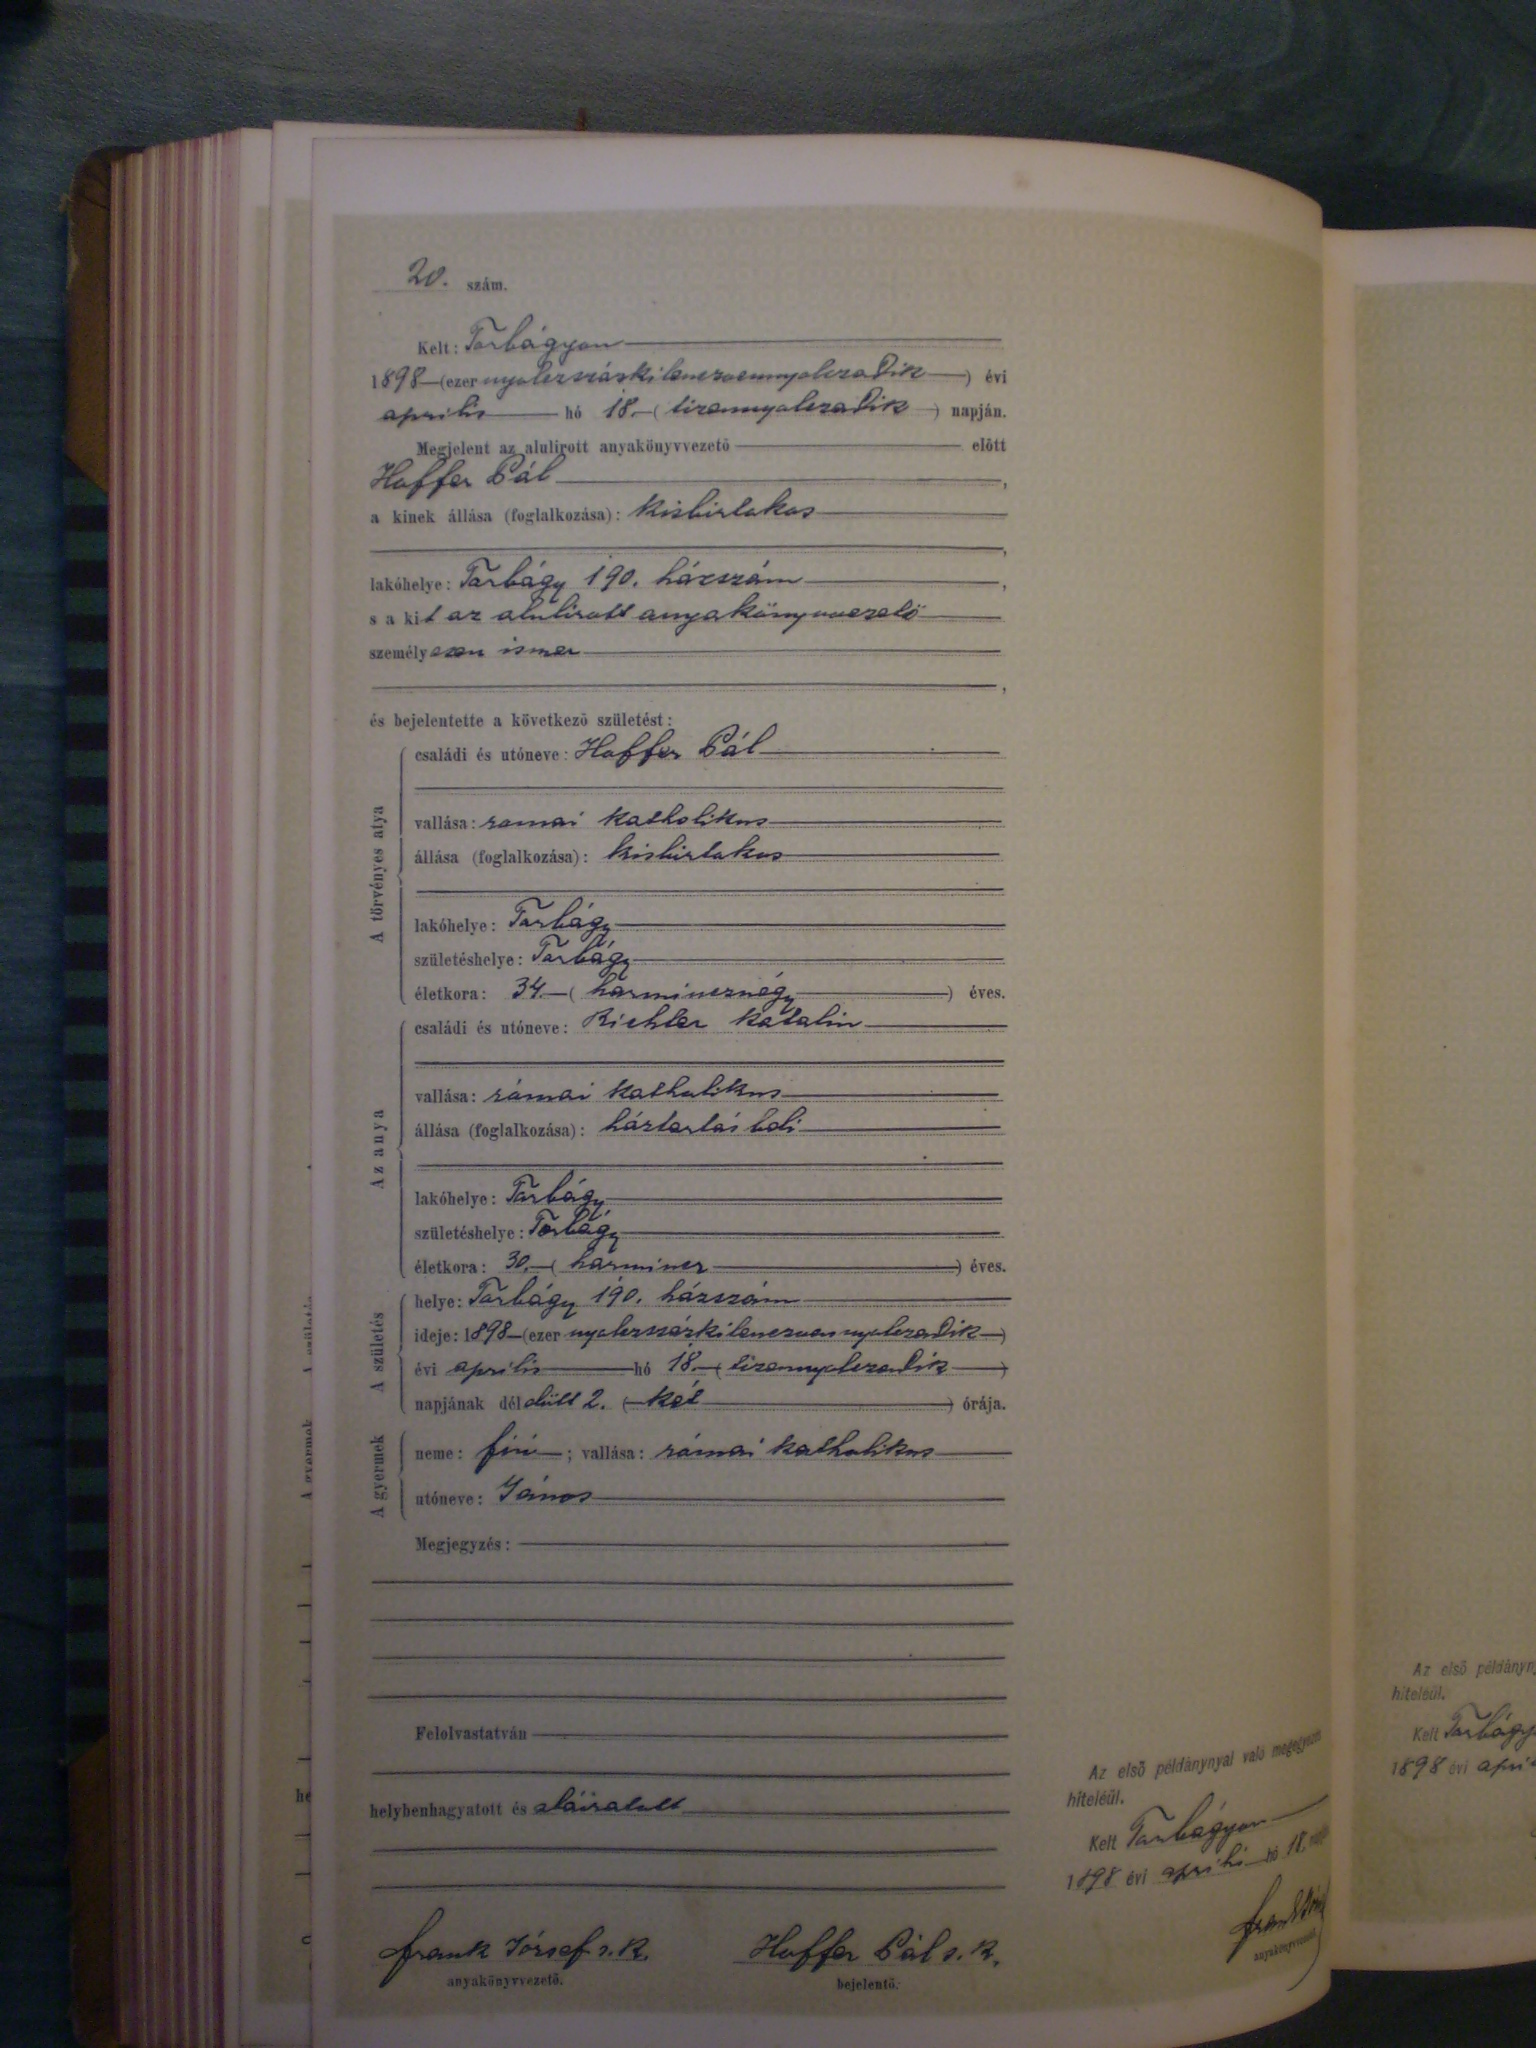 20. szám.
Kelt: Torbágyon
1898 (ezer nyolczszázkilenczvennyolczadik) évi
április hó 18. (tizennyolczadik) napján.
Megjelent az alulirott anyakönyvvezető előtt
Hoffer Pál,
a kinek állása (foglalkozása): kisbirtokos
,
lakóhelye: Torbágy 190. házszám,
s a kit az alulirott anyakönyvvezető
személyesen ismer
,
és bejelentette a következő születést:
A törvényes atya
családi és utóneve: Hoffer Pál
vallása: romai katholikus
állása (foglalkozása): kisbirtokos
lakóhelye: Torbágy
születéshelye: Torbágy
életkora: 34. (harmincznégy) éves.
Az anya
családi és utóneve: Richter Katalin
vallása: római katholikus
állása (foglalkozása): háztartásbeli
lakóhelye: Torbágy
születéshelye: Torbágy
életkora: 30. (harmincz) éves.
A születés
helye: Torbágy 190. házszám
ideje: 1898 (ezer nyolczszázkilenczvennyolczadik)
évi április hó 18. (tizennyolczadik)
napjának délelőtt 2. (két) órája.
A gyermek
neme: fiú; vallása: római katholikus
utóneve: János
Megjegyzés:
Felolvastatván
helybenhagyatott és aláiratott
Frank József s. k. Hoffer Pál s. k.
anyakönyvvezető. bejelentő.
Az első példánynyal való megegyezés
hiteléül.
Kelt Torbágyon
1898 évi április hó 18.
anyakönyvvezető.
Az első példányny
hiteléül.
Kelt Torbágy
1898 évi ápri